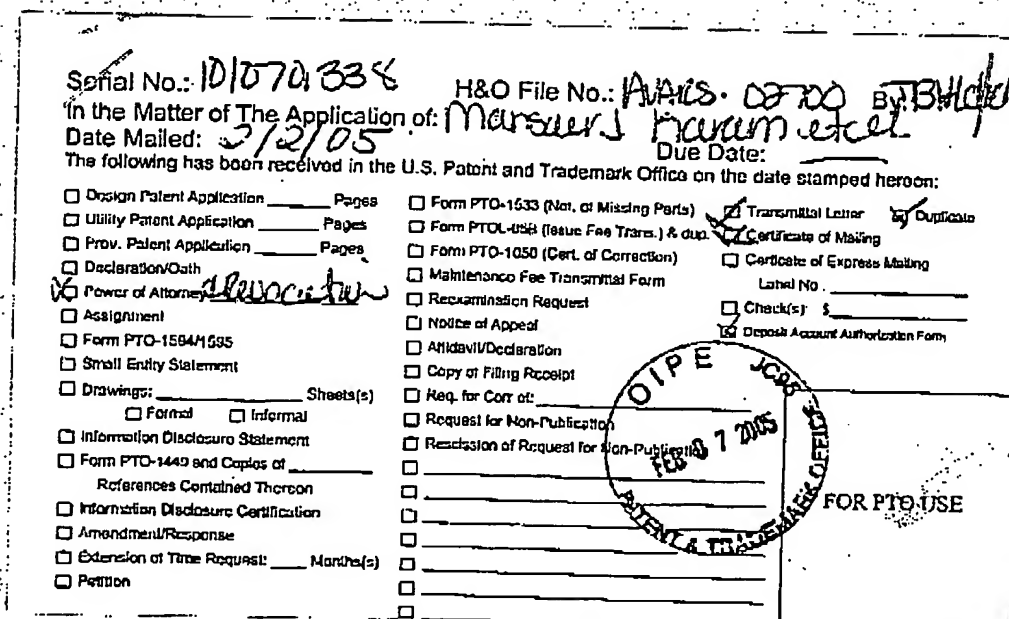 Serial No.: 10/070,338 H&O File No.: By:
In the Matter of The Application of: et al
Date Mailed: 2/2/05 Due Date:
The following has been received in the U.S. Patent and Trademark Office on the date stamped hereon:
Design Patent Application ______ Pages
Utility Patent Application ______ Pages
Prov. Patent Application ______ Pages
Declaration/Oath
Power of Attorney
Assignment
Form PTO-1594/1595
Small Entity Statement
Drawings: ______ Sheets(s)
Formal Informal
Information Disclosure Statement
Form PTO-1449 and Copies of ______
References Contained Thereon
Information Disclosure Certification
Amendment/Response
Extension of Time Request: ____ Months(s)
Petition
Form PTO-1533 (Not. of Missing Parts)
Form PTOL-85B (Issue Fee Trans.) & dup.
Form PTO-1050 (Cert. of Correction)
Maintenance Fee Transmittal Form
Reexamination Request
Notice of Appeal
Affidavit/Declaration
Copy of Filing Receipt
Req. for Corr of: ______
Request for Non-Publication
Rescission of Request for Non-Publication
Transmittal Letter Duplicate
Certificate of Mailing
Certicate of Express Mailing
Label No. ______
Check(s) $ ______
Deposit Account Authorization Form
OIPE JC95
FEB 07 2005
PATENT & TRADEMARK OFFICE
FOR PTO USE